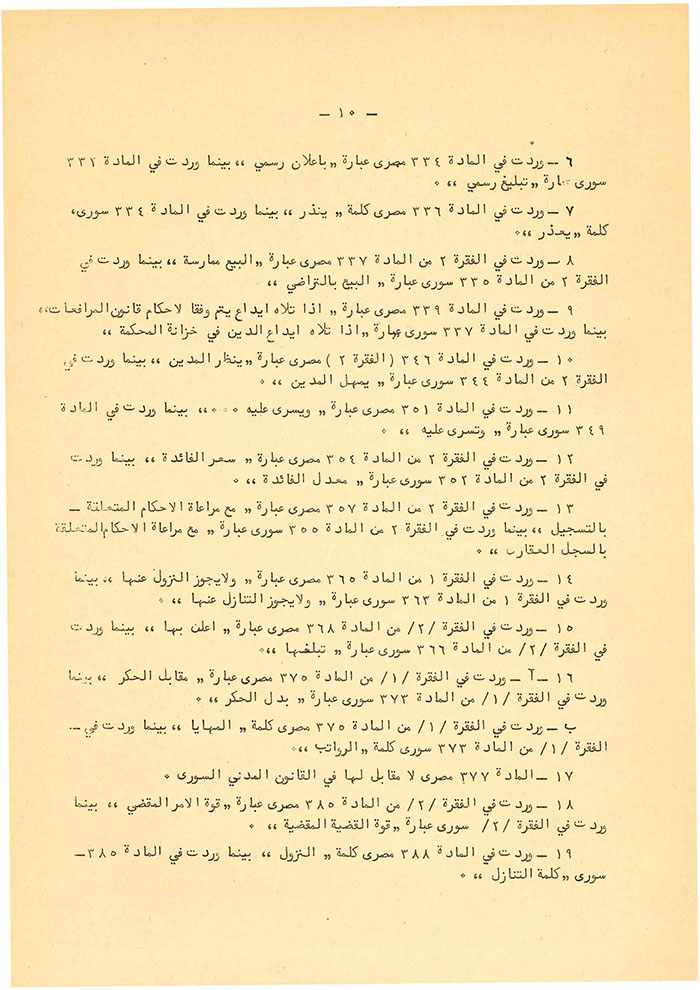 — ١٠ —
٦ — وردت في المادة ٣٣٤ مصرى عبارة „ باعلان رسمي „ بينما وردت في المادة ٣٣٢
سورى عبارة „ تبليغ رسمي „ ٠
٧ — وردت في المادة ٣٣٦ مصرى كلمة „ ينذر „ بينما وردت في المادة ٣٣٤ سورى،
كلمة „ يعذر „ ٠
٨ — وردت في الفقرة ٢ من المادة ٣٣٧ مصرى عبارة „ البيع ممارسة „ بينما وردت في
الفقرة ٢ من المادة ٣٣٥ سورى عبارة „ البيع بالتراضي „
٩ — وردت في المادة ٣٣٩ مصرى عبارة „ اذا تلاه ايداع يتم وفقا لاحكام قانون المرافعات „
بينما وردت في المادة ٣٣٧ سورى عبارة „ اذا تلاه ايداع الدين في خزانة المحكمة „
١٠ — وردت في المادة ٣٤٦ ( الفقرة ٢ ) مصرى عبارة „ ينظر المدين „ بينما وردت في
الفقرة ٢ من المادة ٣٤٤ سورى عبارة „ يمهل المدين „ ٠
١١ — وردت في المادة ٣٥١ مصرى عبارة „ ويسرى عليه ٠٠٠ „ بينما وردت في المادة
٣٤٩ سورى عبارة „ وتسرى عليه „ ٠
١٢ — وردت في الفقرة ٢ من المادة ٣٥٤ مصرى عبارة „ سعر الفائدة „ بينما وردت
في الفقرة ٢ من المادة ٣٥٢ سورى عبارة „ معدل الفائدة „ ٠
١٣ — وردت في الفقرة ٢ من المادة ٣٥٧ مصرى عبارة „ مع مراعاة الاحكام المتعلقة —
بالتسجيل „ بينما وردت في الفقرة ٢ من المادة ٣٥٥ سورى عبارة „ مع مراعاة الاحكام المتعلقة
بالسجل العقارى „ ٠
١٤ — وردت في الفقرة ١ من المادة ٣٦٥ مصرى عبارة „ ولايجوز النزول عنها „ بينما
وردت في الفقرة ١ من المادة ٣٦٣ سورى عبارة „ ولايجوز التنازل عنها „ ٠
١٥ — وردت في الفقرة /٢/ من المادة ٣٦٨ مصرى عبارة „ اعلن بها „ بينما وردت
في الفقرة /٢/ من المادة ٣٦٦ سورى عبارة „ تبلغها „ ٠
١٦ — آ — وردت في الفقرة /١/ من المادة ٣٧٥ مصرى عبارة „ مقابل الحكر „ بينما
وردت في الفقرة /١/ من المادة ٣٧٣ سورى عبارة „ بدل الحكر „ ٠
ب — وردت في الفقرة /١/ من المادة ٣٧٥ مصرى كلمة „ المهايا „ بينما وردت في —
الفقرة /١/ من المادة ٣٧٣ سورى كلمة „ الرواتب „ ٠
١٧ — المادة ٣٧٧ مصرى لا مقابل لها في القانون المدني السورى ٠
١٨ — وردت في الفقرة /٢/ من المادة ٣٨٥ مصرى عبارة „ قوة الامر المقضي „ بينما
وردت في الفقرة /٢/ سورى عبارة „ قوة القضية المقضية „ ٠
١٩ — وردت في المادة ٣٨٨ مصرى كلمة „ النزول „ بينما وردت في المادة ٣٨٥ —
سورى „ كلمة التنازل „ ٠